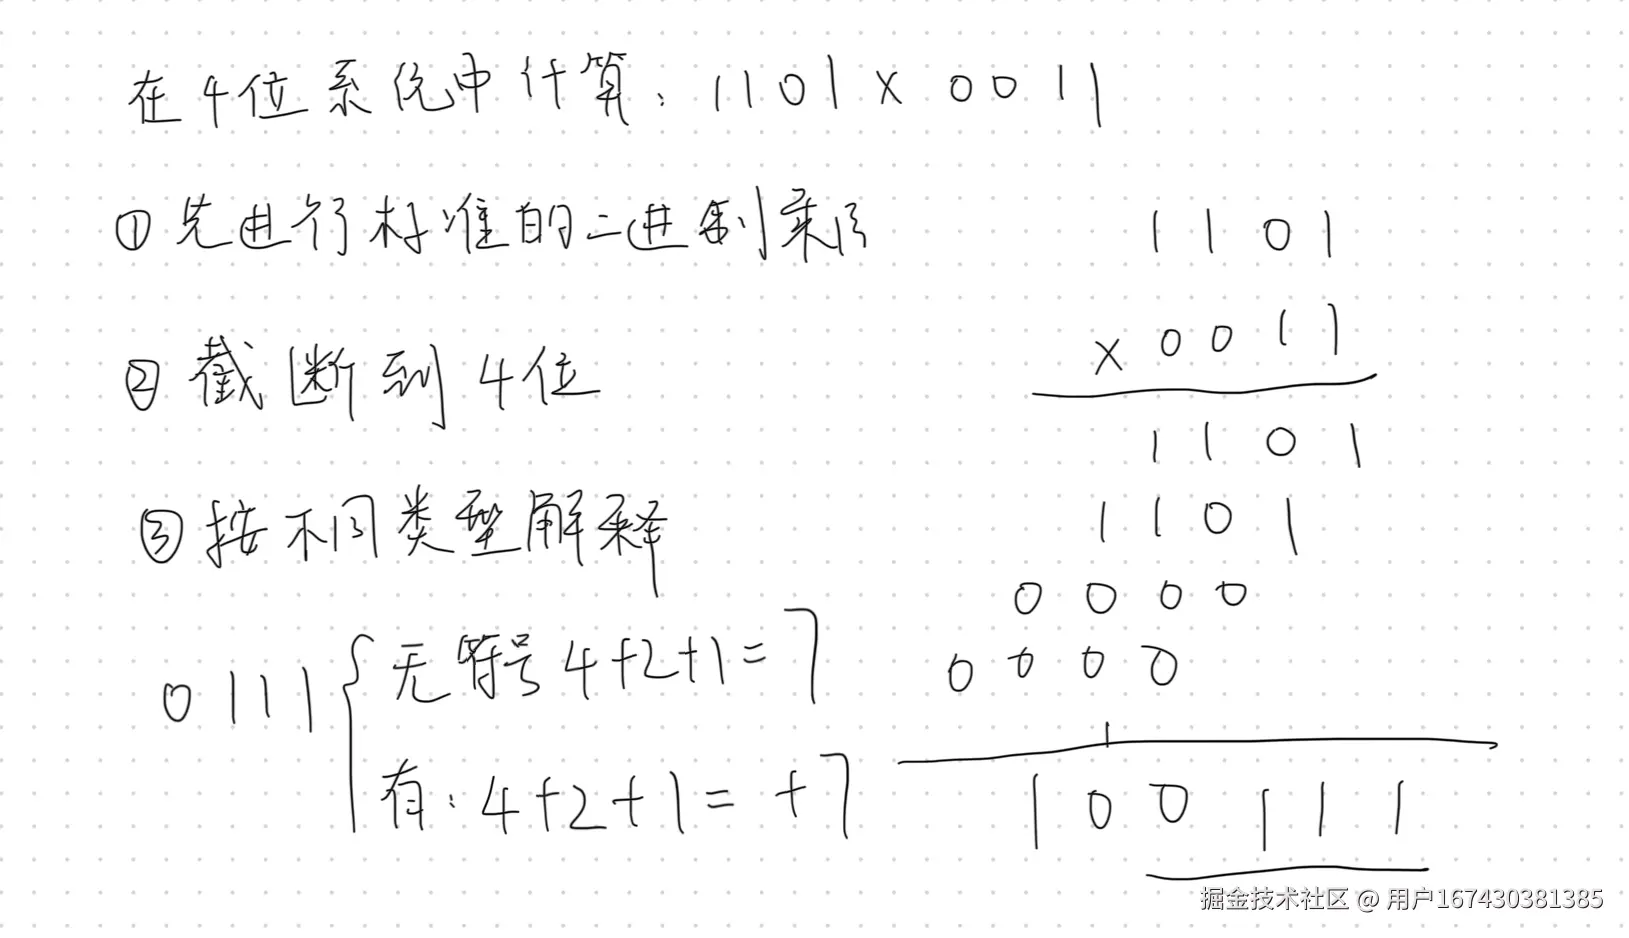 在4位系统中计算：1101×0011
①先进行标准的二进制乘法
②截断到4位
③按不同类型解释
0111
无符号4+2+1=7
有：4+2+1=+7
1101
×0011
1101
1101
0000
0000
1
100111
掘金技术社区 @ 用户167430381385